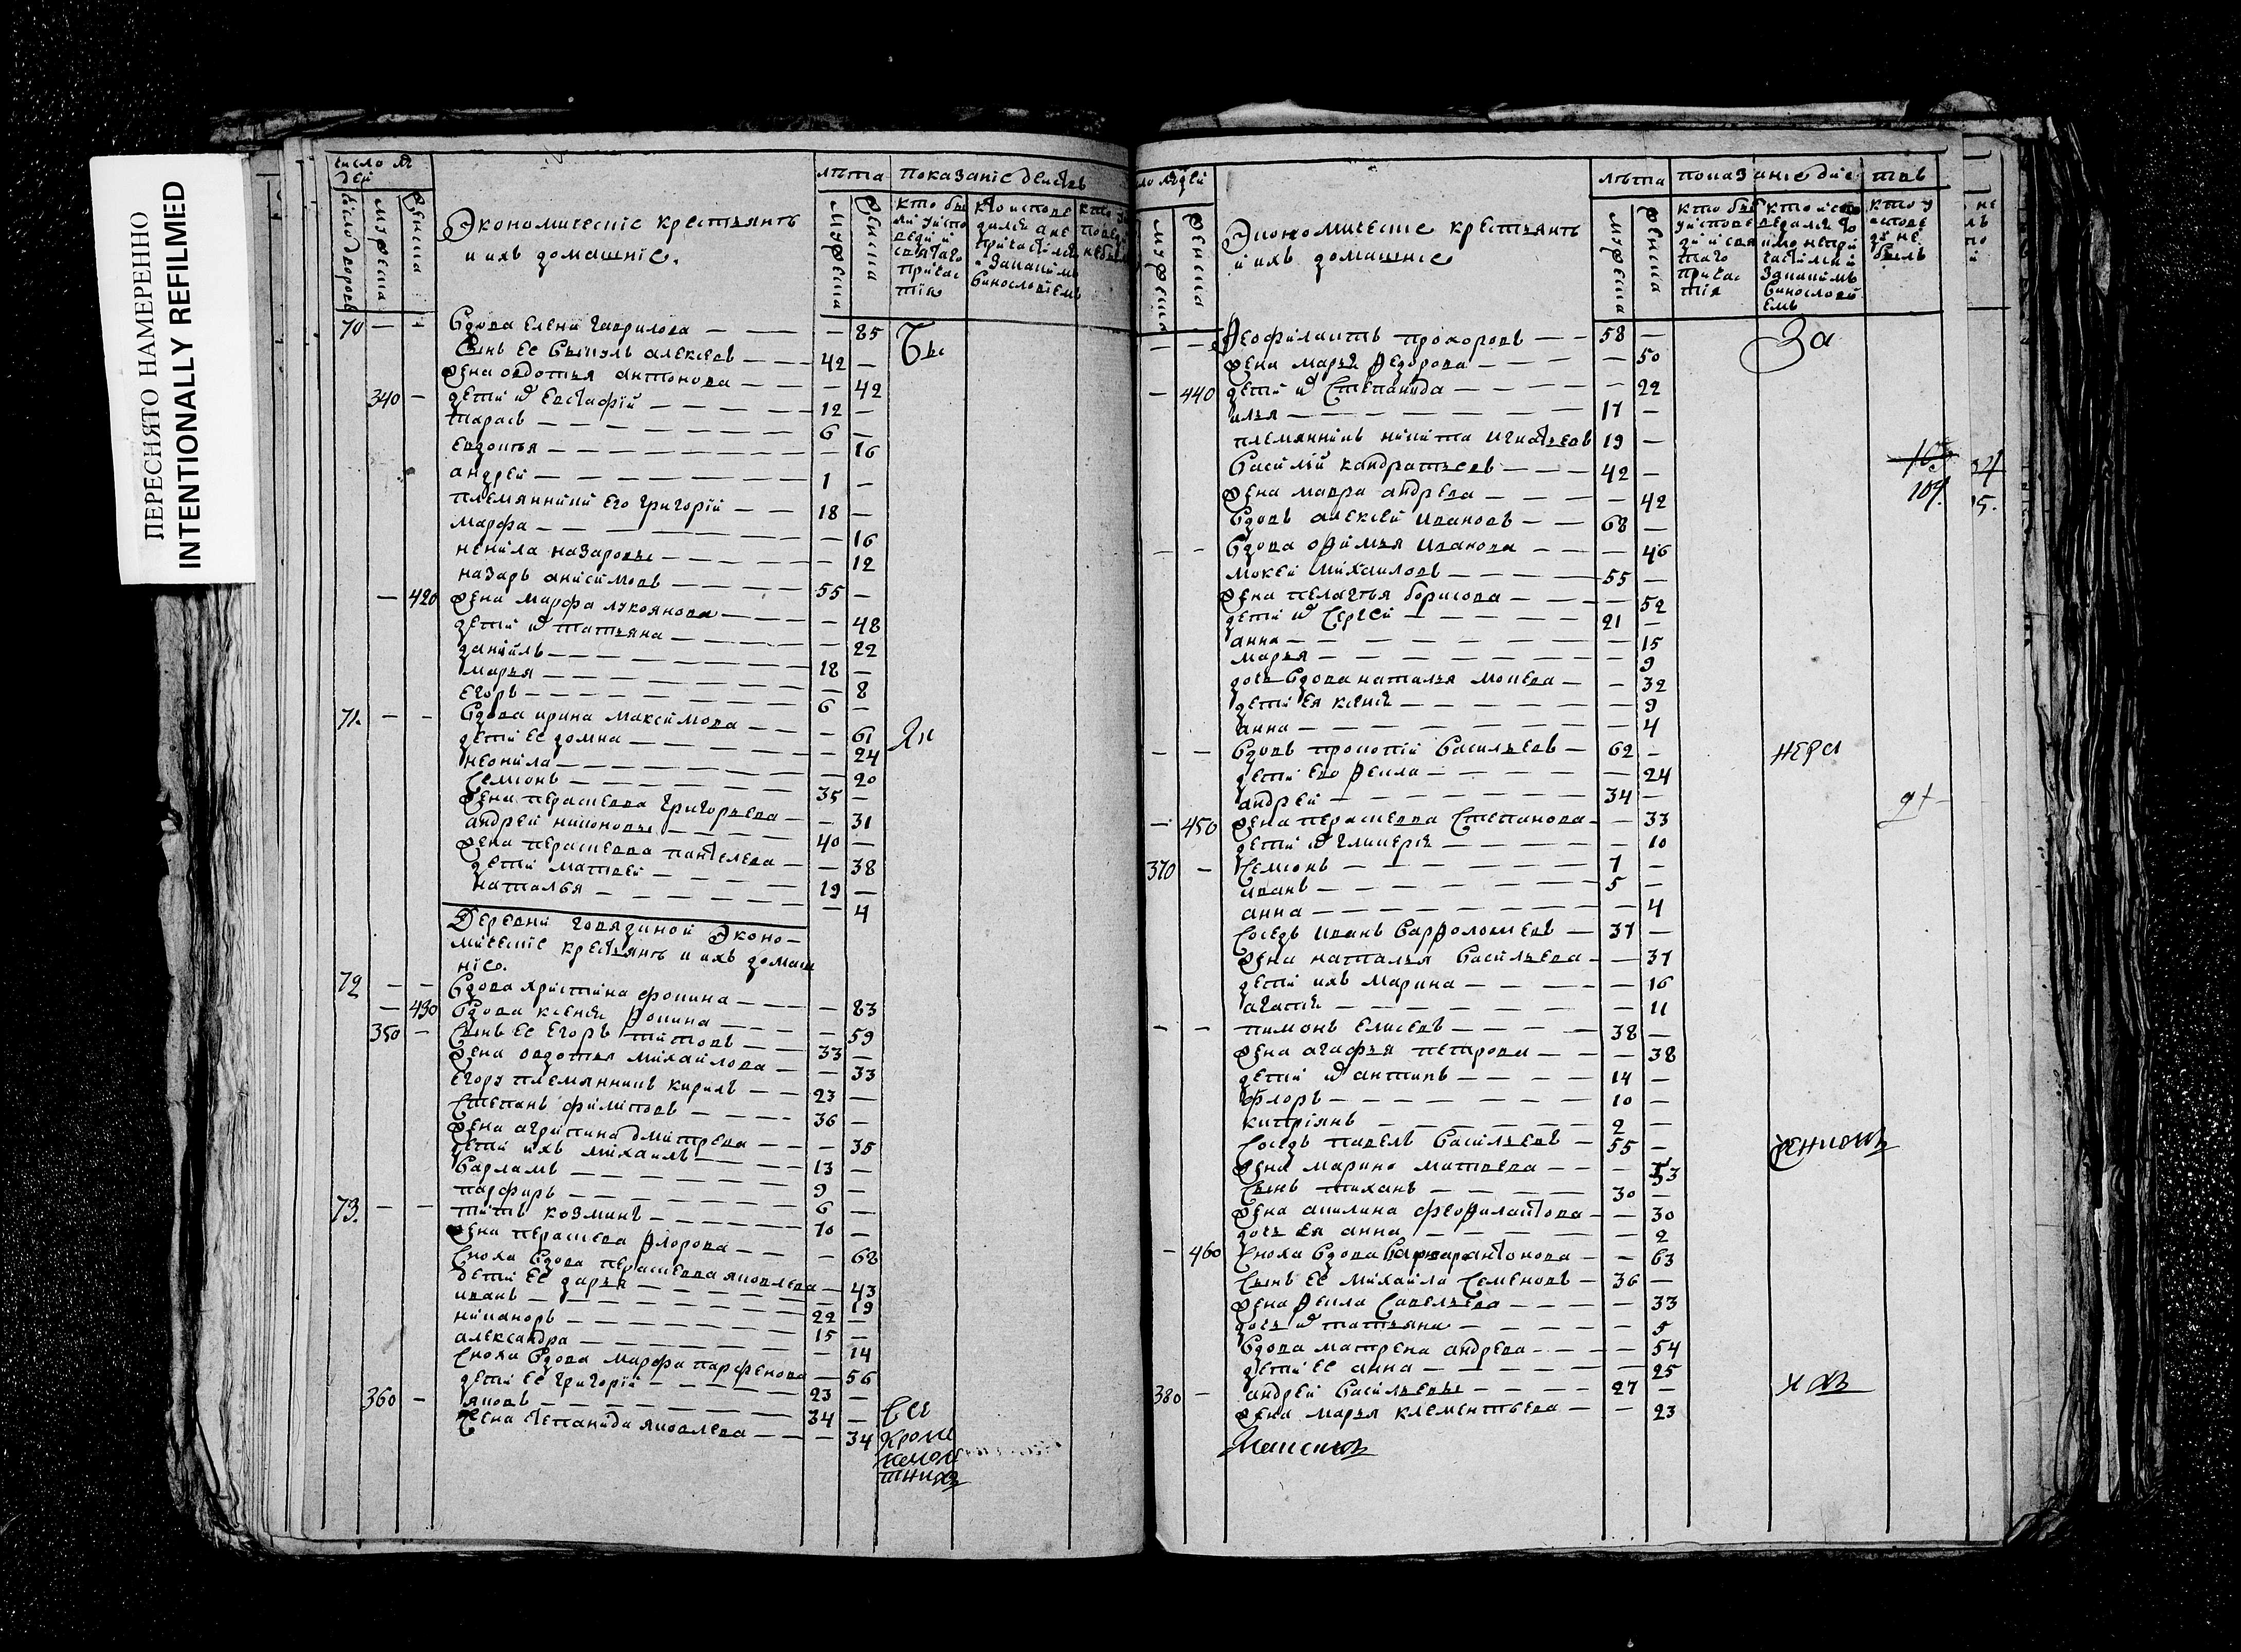 ПЕРЕСНЯТО НАМЕРЕННО
INTENTIONALLY REFILMED
число лю
дей
число дворовъ
мужеска
женска
Экономическіе крестьянъ
и ихъ домашніе.
лѣта
показаніе действ
мужеска
женска
кто бы
ли у испо
веди и
святаго
причас
тія
кто испове
дался а не
причастился
виносло віемъ
70 — — Вдова Елена Гаврилова — — — 85 Бы
Сынъ ее Викулъ алексеев — — 42 —
жена овдотья антонова — — — 42
340 — дети их Евстафій — — — 12 —
тарасъ — — — 6 —
Евдотья — — — 16
андрей — — — 1 —
племянники его григорій — — 18 —
марфа — — — 16
ненила назаровы — — — 12
назаръ анисимовъ — — — 55 —
— 420 жена марфа лукоянова — — — 48
дети их татьяна — — — 22
данийлъ — — — 18 —
марья — — — 8
Егоръ — — — 6 —
71. — — Вдова ирина максимова — — — 61 ли
дети ее домна — — — 24
неонила — — — 20
Семіонъ — — — 35 —
жена парасковья григорьева — — 31
андрей никоновъ — — — 40 —
жена парасковья пантелева — — 38
дети матвей — — — 19 —
наталья — — — 4
Деревни Говядиной Эконо-
мическіе крестьянъ и ихъ домаш
ніе.
72 — — Вдова христина фокина — — — 83
— 430 Вдова ксения Фокина — — — 59
350 — Сынъ ее Егоръ титовъ — — 33 —
жена овдотья михайлова — — — 33
Егору племянникъ кирилъ — — 23 —
Степанъ филиповъ — — — 36 —
жена агрипина дмитрева — — — 35
дети ихъ михаилъ — — — 13 —
Варламъ — — — 9 —
парфиръ — — — 6 —
73. — — титъ козминъ — — — 70 —
жена параскева Флорова — — — 68
Сноха Вдова парасковья яковлева — — 43
дети ее дарья — — — 19
иванъ — — — 22 —
никаноръ — — — 15 —
александра — — — 14
Сноха Вдова марфа парфенова — — 56
дети ее григорій — — — 23 —
360 — яковъ — — — 34 — Все
жена Степанида яковлева — — — 34 кроме
тниковъ
ло людей
мужеска
женска
Экономическіе крестьянъ
и ихъ домашніе
лѣта
показаніе дѣйствъ
мужеска
женска
кто был
у испове
ди и свя
таго
причас
тія
кто испо
ведался то
лмо непри
частился
виносло вії
емъ
кто у
испове
ди не
былъ
— — Феофилактъ прохоровъ — — 58 — За
жена марья Федорова — — — 50
— 440 дети их Степанида — — — 22
илья — — — 17 —
племянникъ никита игнатьевъ 19 —
Василій кандратьевъ — — — 42 —
жена мавра андрева — — — 42
104.
Вдовъ алексей ивановъ — — 68 —
— — Вдова офимья иванова — — — 46
мокей михаиловъ — — — 55 —
жена пелагья борисова — — — 52
дети их Сергей — — — 21 —
анна — — — 15
марья — — — 9
дочь Вдова наталья мокева — — 32
дети ея ксения — — — 9
анна — — — 4
— — Вдовъ прокопій Васильевъ — 62 —
дети его Фекла — — — 24
андрей — — — 34 —
— 450 жена парасковья Степанова — — 33
дети их гликерія — — — 10
370 — Семіонъ — — — 7 —
иванъ — — — 5 —
анна — — — 4
Соседъ иванъ Варфоломеевъ — 37 —
жена наталья Васильева — — 37
дети ихъ марина — — — 16
агапія — — — 11
— — пимонъ Елисеевъ — — — 38 —
жена агафья петрова — — — 38
дети их антипъ — — — 14 —
Флоръ — — — 10 —
кипріянъ — — — 2 —
Соседъ павелъ Васильевъ — 55 —
жена марина матвева — — — 53
Сынъ тихонъ — — — 30 —
жена акилина феофилактова — — 30
дочь ея анна — — — 2
— 460 Сноха Вдова Варвара антонова — — 63
Сынъ ее михайла Семеновъ — 36 —
жена Фекла Савельева — — — 33
дочь их татьяна — — — 5
Вдова матрена андрева — — — 54
дети ее анна — — — 25
380 — андрей Васильевъ — — — 27 —
жена марья клементьева — — 23